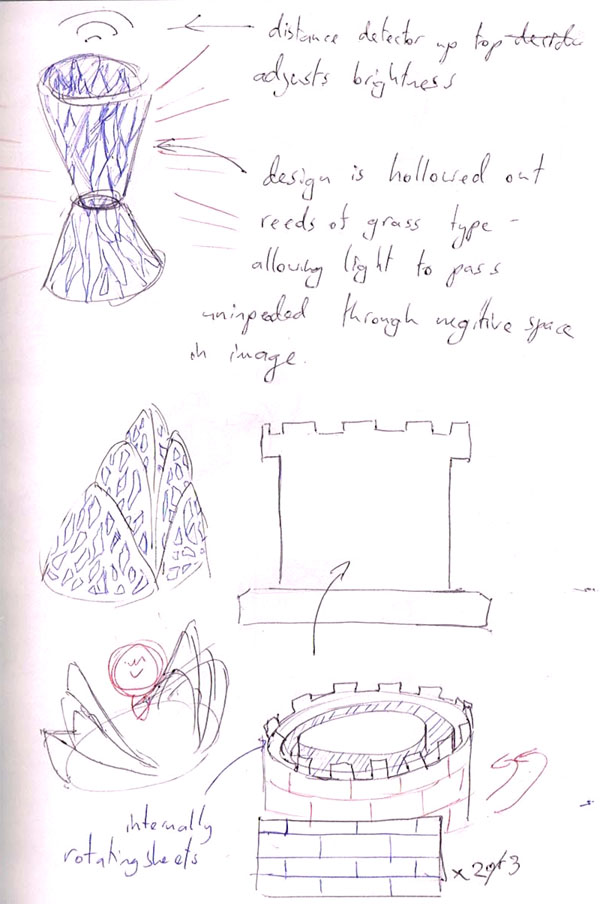 distance detector up top
adjusts brightness
design is hollowed out
reeds of grass type -
allowing light to pass
unimpeded through negitive space
in image.
internally
rotating sheets
x 2 or 3